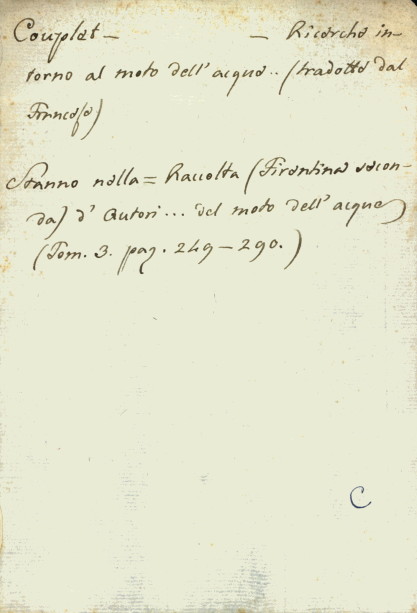 Couplet — — Ricerche in-
torno al moto dell'acque.. (tradotte dal
Francese)
Stanno nella = Raccolta (Fiorentina secon-
da) d'Autori... del moto dell'acque
(Tom. 3. pag. 249 — 290.)
C